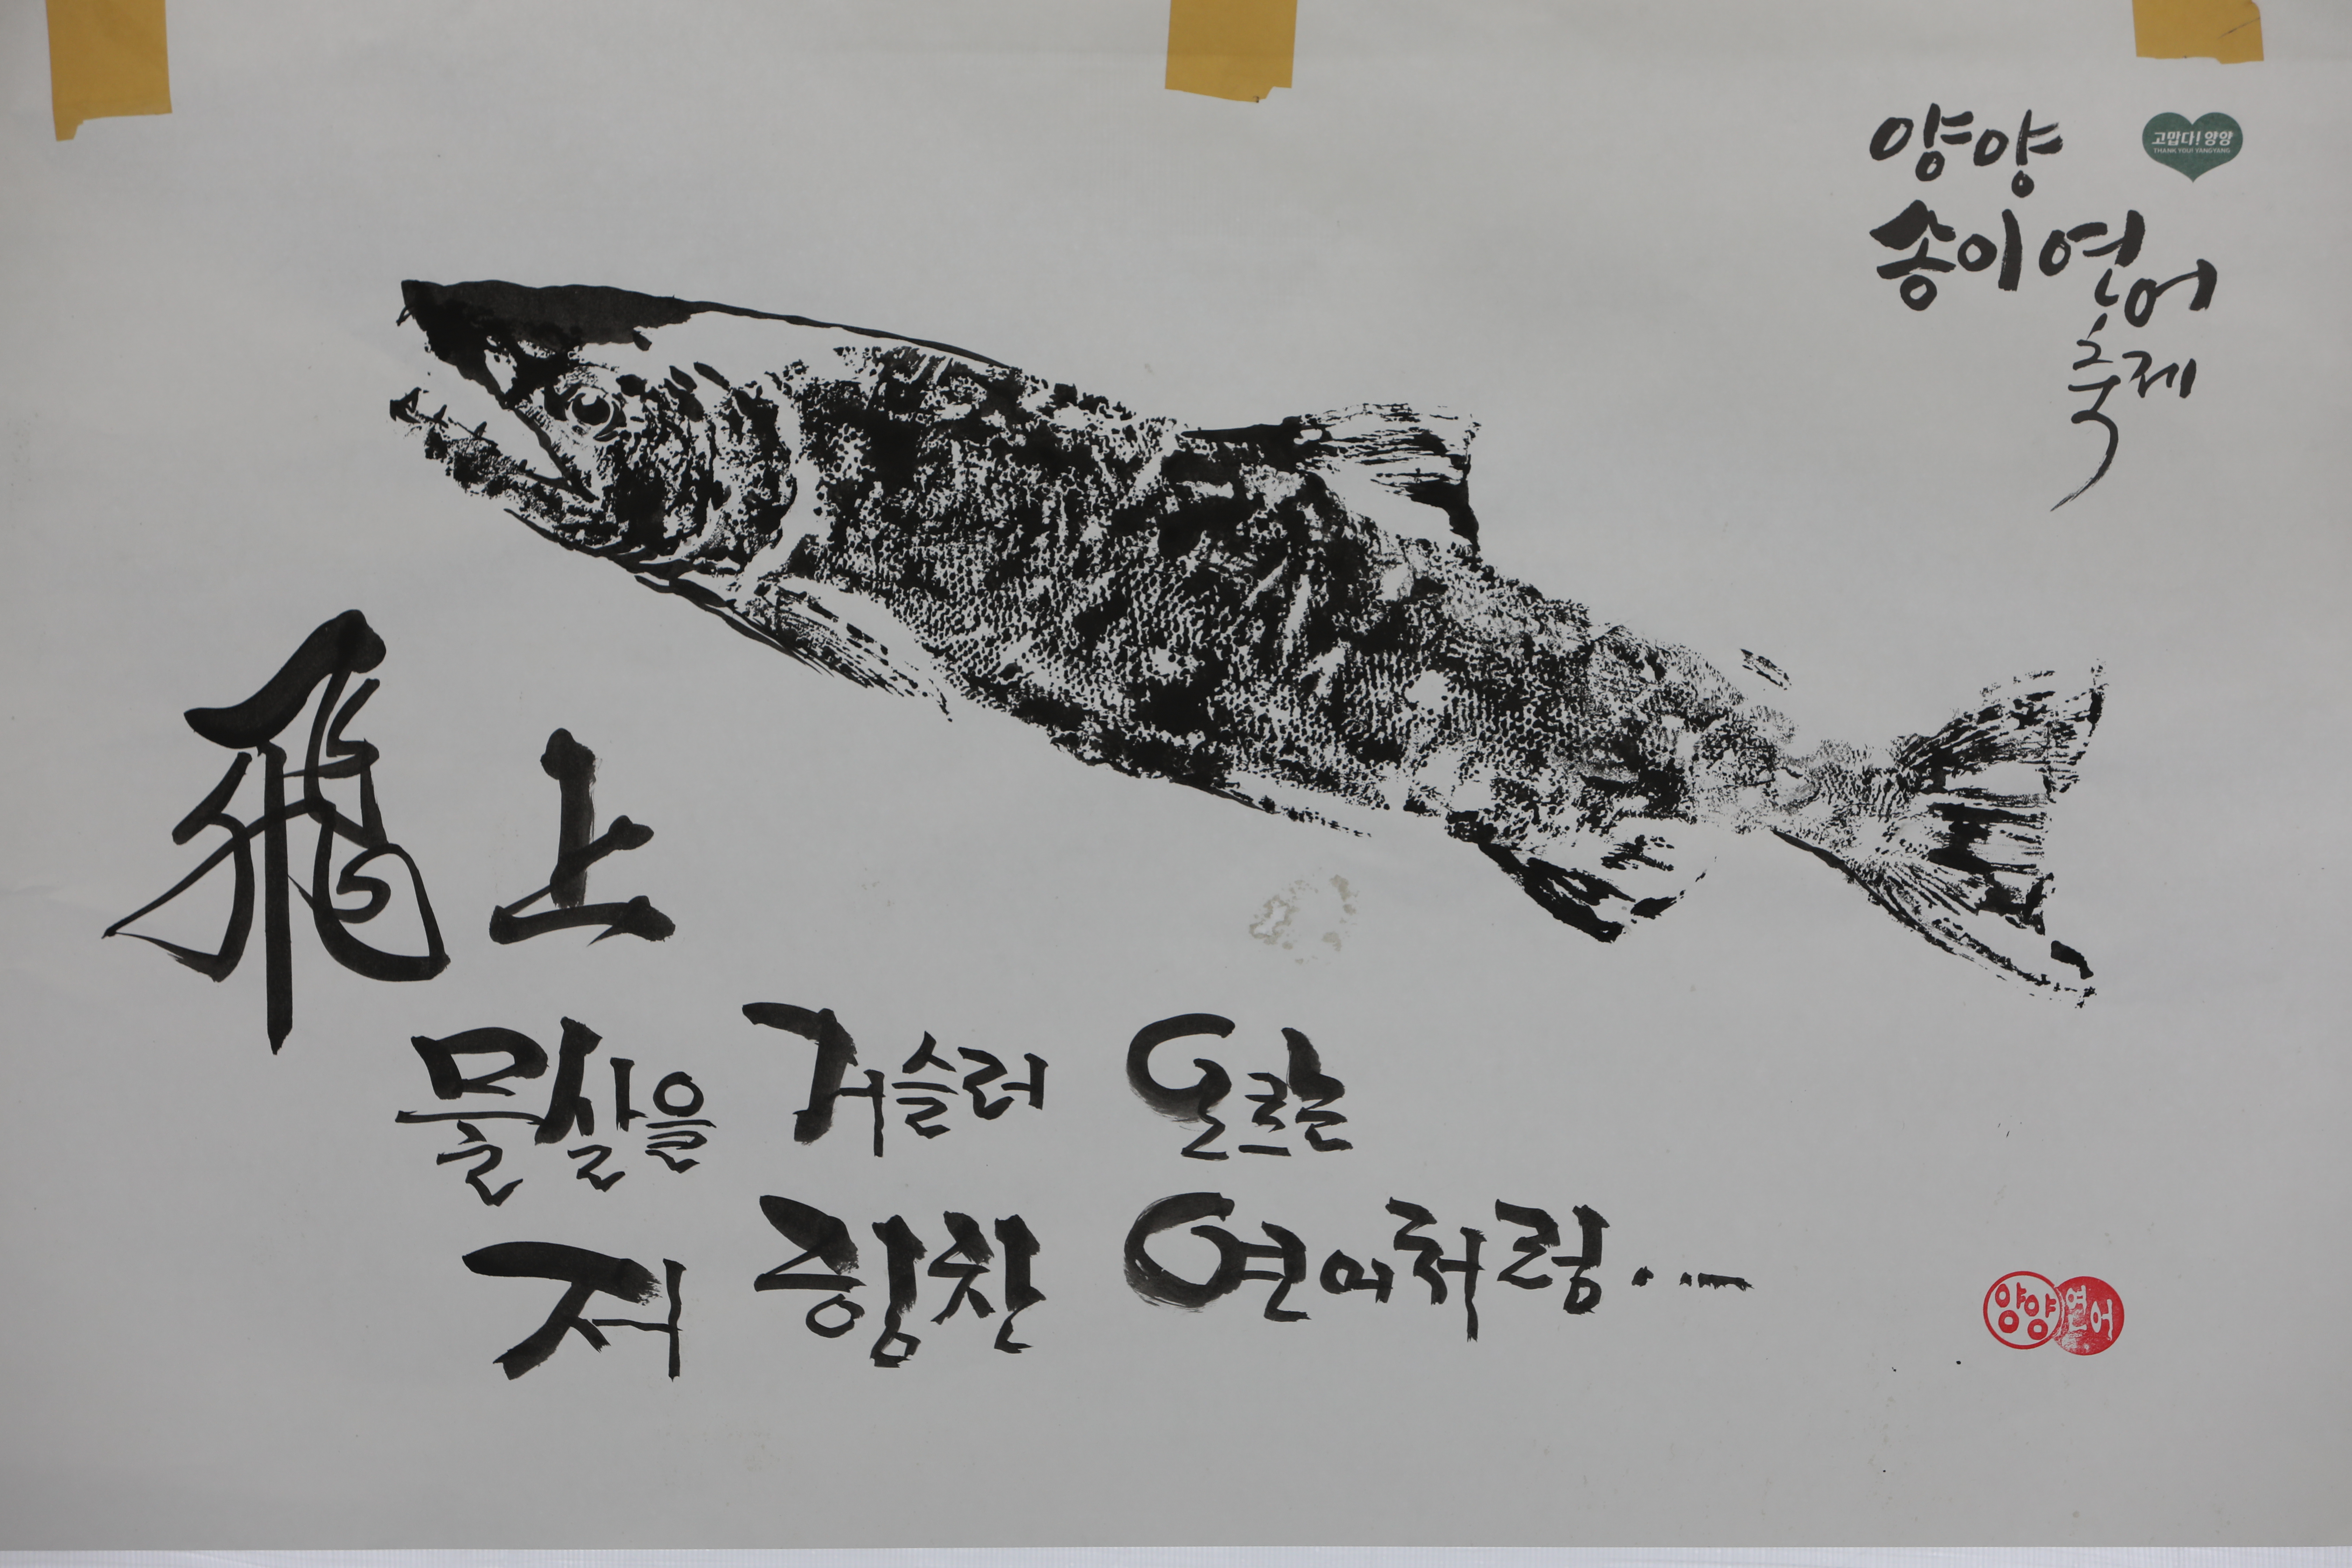 양양
고맙다! 양양
THANK YOU! YANGYANG
송이 연어
축제
飛上
물살을 거슬러 오르는
저 힘찬 연어처럼...
양양 연어